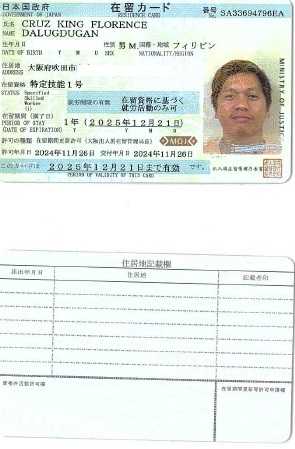 日本国政府 在留カード 番号 SA33694796EA
GOVERNMENT OF JAPAN RESIDENCE CARD
氏名 CRUZ KING FLORENCE
NAME DALUGDUGAN
生年月日 年 月 日 性別 男 M. 国籍・地域 フィリピン
DATE OF BIRTH Y M D SEX NATIONALITY/REGION
住居地 大阪府吹田市
ADDRESS
在留資格 特定技能1号
STATUS Specified
Skilled
Worker
(i)
就労制限の有無 在留資格に基づく
就労活動のみ可
在留期間(満了日) 1年(2025年12月21日)
PERIOD OF STAY
(DATE OF EXPIRATION) Y M D
MOJ
許可の種類 在留期間更新許可(大阪出入国在留管理局長)
許可年月日 2024年11月26日 交付年月日 2024年11月26日
このカードは 2025年12月21日まで有効
PERIOD OF VALIDITY OF THIS CARD
MINISTRY OF JUSTICE
住居地記載欄
届出年月日 住居地 記載者印
資格外活動許可欄 在留期間更新等許可申請欄